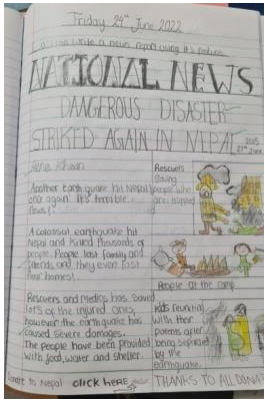 Friday 24th June 2022
write a news report using its feature
NATIONAL NEWS
DAANGEROUS DISASTER
STRIKED AGAIN IN NEPAL 2015
Khan
Another earthquake hit Nepal
once again. It's terrible
news!
A colossal earthquake hit
Nepal and killed thousands of
people. People lost family and
friends and they even lost
their homes!
Rescuers and medics has saved
lots of the injured ones,
however the earthquake has
caused severe damages.
The people have been provided
with food, water and shelter.
Rescuers
saving
people who
are trapped
People at the camp
Kids reuniting
with their
parents after
being separated
by the
earthquake.
Donate to Nepal click HERE
THANKS TO ALL